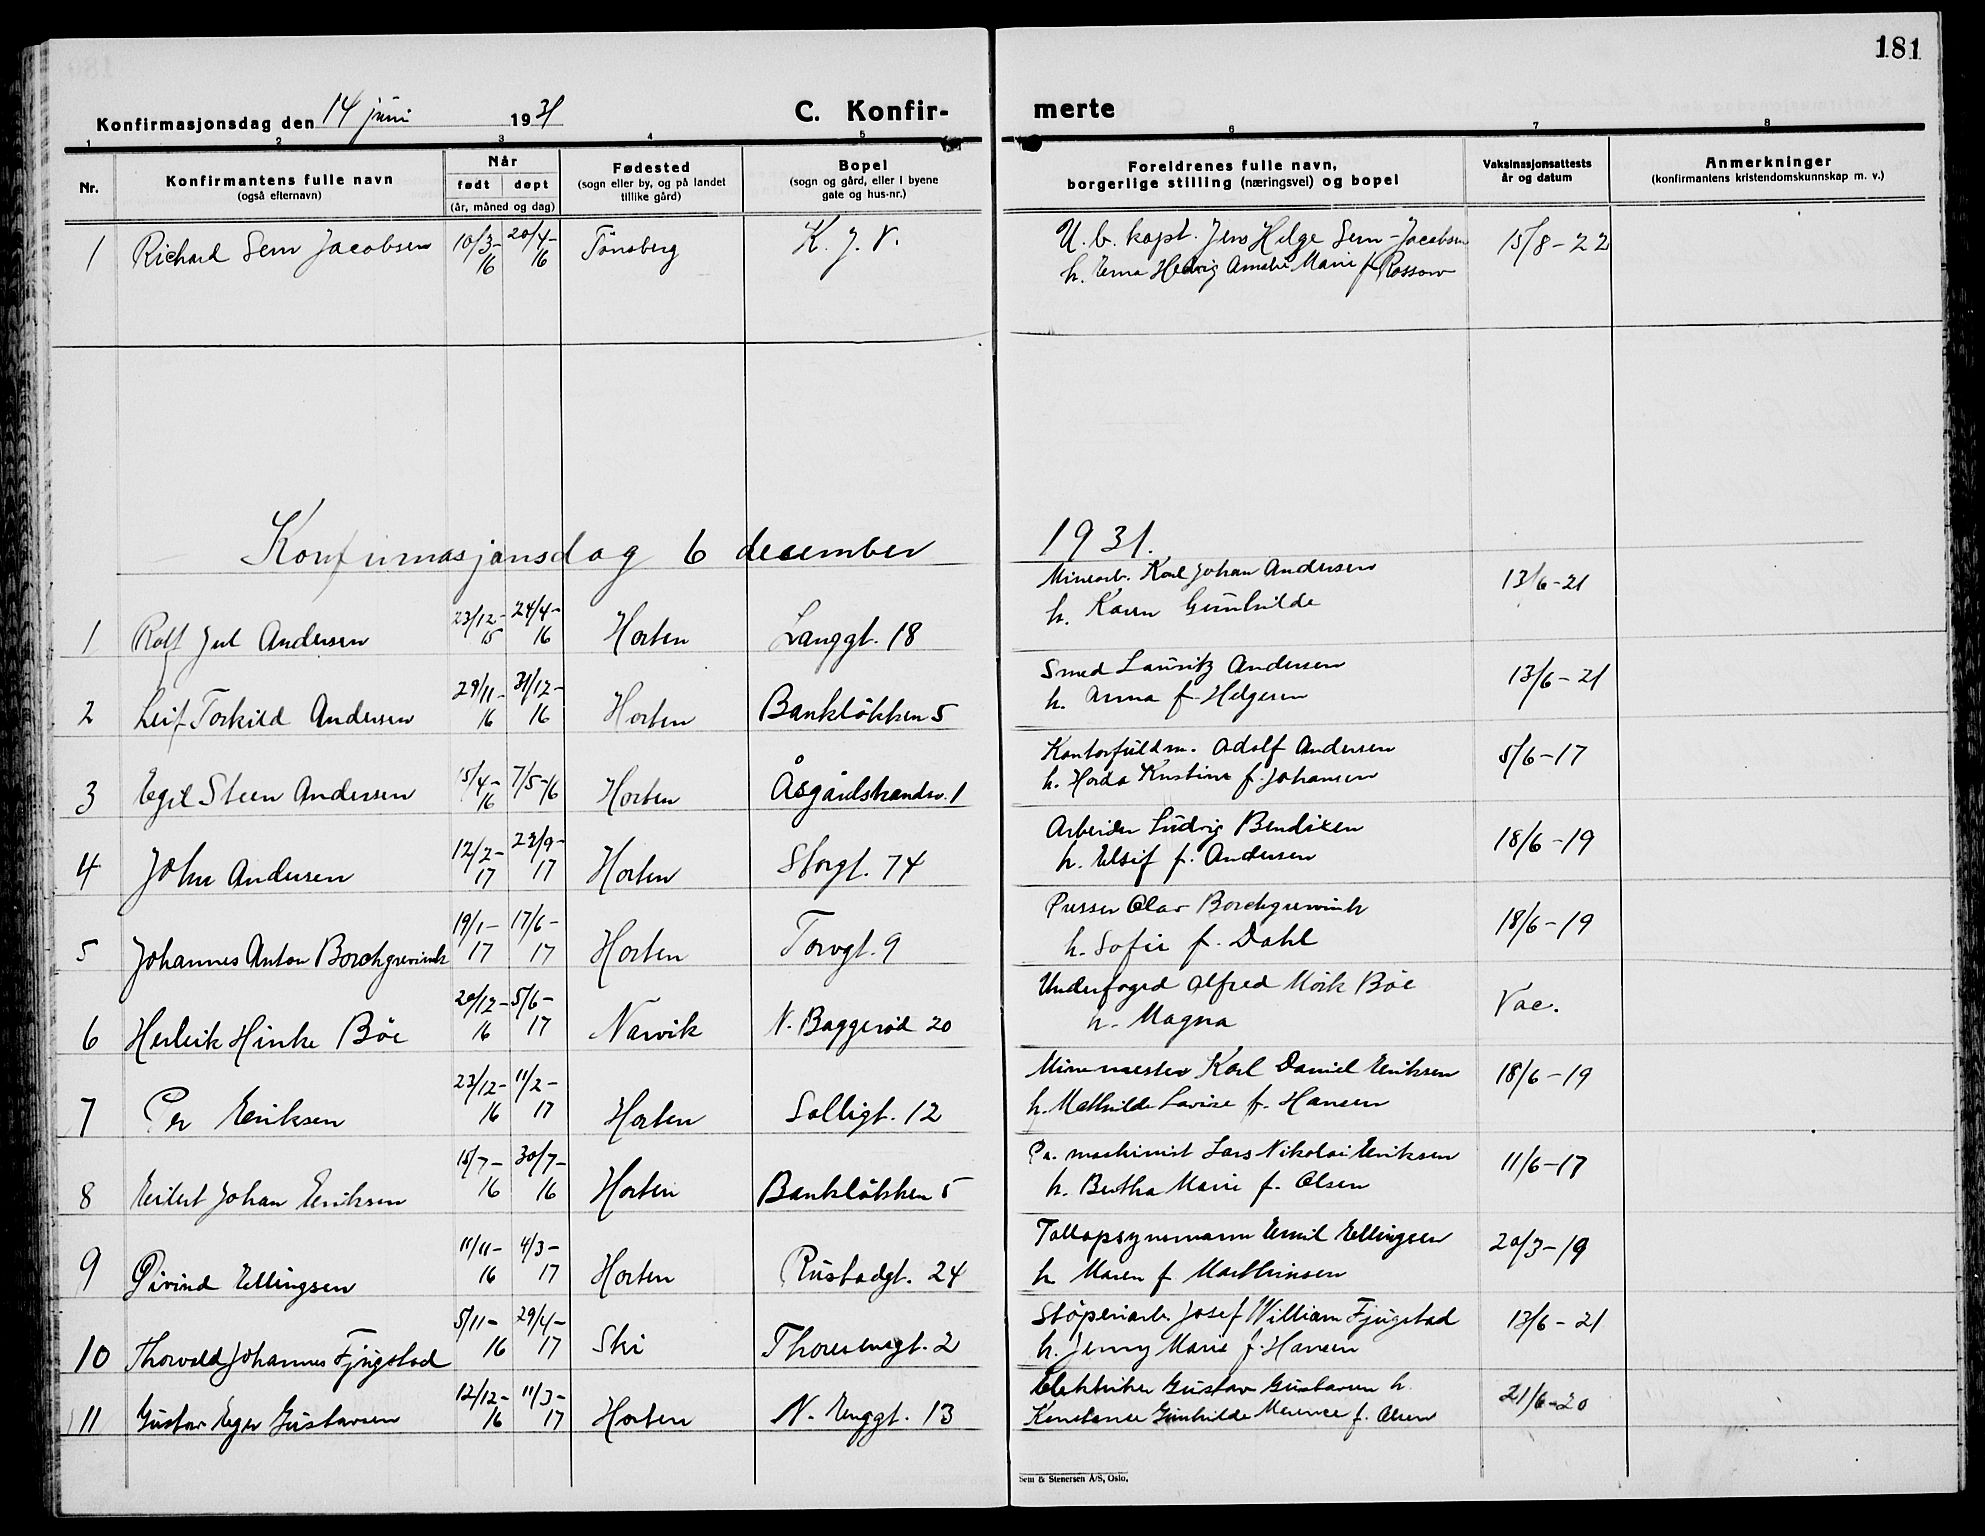 181
Konfirmasjonsdag den 14 juni 1931 C. Konfir- merte
1 2 3 4 5 6 7 8
Nr. Konfirmantens fulle navn (også efternavn) Når født døpt (år, måned og dag) Fødested (sogn eller by, og på landet tillike gård) Bopel (sogn og gård, eller i byene gate og hus-nr.) Foreldrenes fulle navn, borgerlige stilling (næringsvei) og bopel Vaksinasjonsattests år og datum Anmerkninger (konfirmantens kristendomskunnskap m. v.)
1 Richard Sem Jacobsen 10/3-16 20/4-16 Tönsberg K. J. V. U. b. kapt. Jens Helge Sem-Jacobsen 15/8-22
h. Erna Hedvig Amalie Marie f. Rossow
Konfirmasjonsdag 6 december 1931.
1 Rolf Jul Andersen 23/12-15 24/4-16 Horten Langgt. 18 Minearb. Karl Johan Andersen 13/6-21
h. Karen Gunhilde
2 Leif Torkild Andersen 29/11-16 31/12-16 Horten Banklökken 5 Smed Lauritz Andersen 13/6-21
h. Anna f. Helgesen
3 Egil Steen Andersen 15/4-16 7/5-16 Horten Åsgårdstrandsv. 1 Kontorfuldm. Adolf Andersen 5/6-17
h. Horda Kristine f. Johansen
4 John Andersen 12/2-17 23/9-17 Horten Storgt. 74 Arbeider Ludvig Bendixen 18/6-19
h. Elsif f. Andersen
5 Johannes Anton Borchgrevink 19/1-17 17/6-17 Horten Torvgt. 9 Presser Olav Borchgrevink 18/6-19
h. Sofie f. Dahl
6 Herleik Hinke Böe 20/12-16 5/6-17 Narvik N. Baggerød 20 Underfoged Alfred Mörk Böe Vac.
h. Magna
7 Per Eriksen 23/12-16 11/2-17 Horten Solligt. 12 Minemester Karl Daniel Eriksen 18/6-19
h. Mathilde Lovise f. Hansen
8 Eilert Johan Eriksen 15/7-16 30/7-16 Horten Banklökken 5 maskinist Lars Nikolai Eriksen 11/6-17
h. Bertha Marie f. Olsen
9 Øivind Ellingsen 11/11-16 4/3-17 Horten Rustadgt. 24 Tollopsynsmann Emil Ellingsen 20/3-19
h. Maren f. Marthinsen
10 Thorvald Johannes Fjugstad 5/11-16 29/4-17 Ski Thoresensgt. 2 Støperiarb. Josef William Fjugstad 13/6-21
h. Jenny Marie f. Hansen
11 Gustav Eger Gustavsen 12/12-16 11/3-17 Horten N. Enggt. 13 Elektriker Gustav Gustavsen h. 21/6-20
Konstanse Gunhilde Merence f. Olsen
Sem & Stenersen A/S, Oslo.